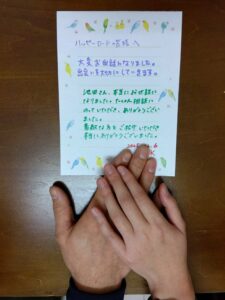 ハッピーカードの皆様へ
大変お世話になりました。
出会いを大切にしていきます。
池田さん、本当にお世話に
なりました。たくさん相談に
のっていただき、ありがとうござい
ました。
素敵な方をご紹介いただき
本当にありがとうございました。